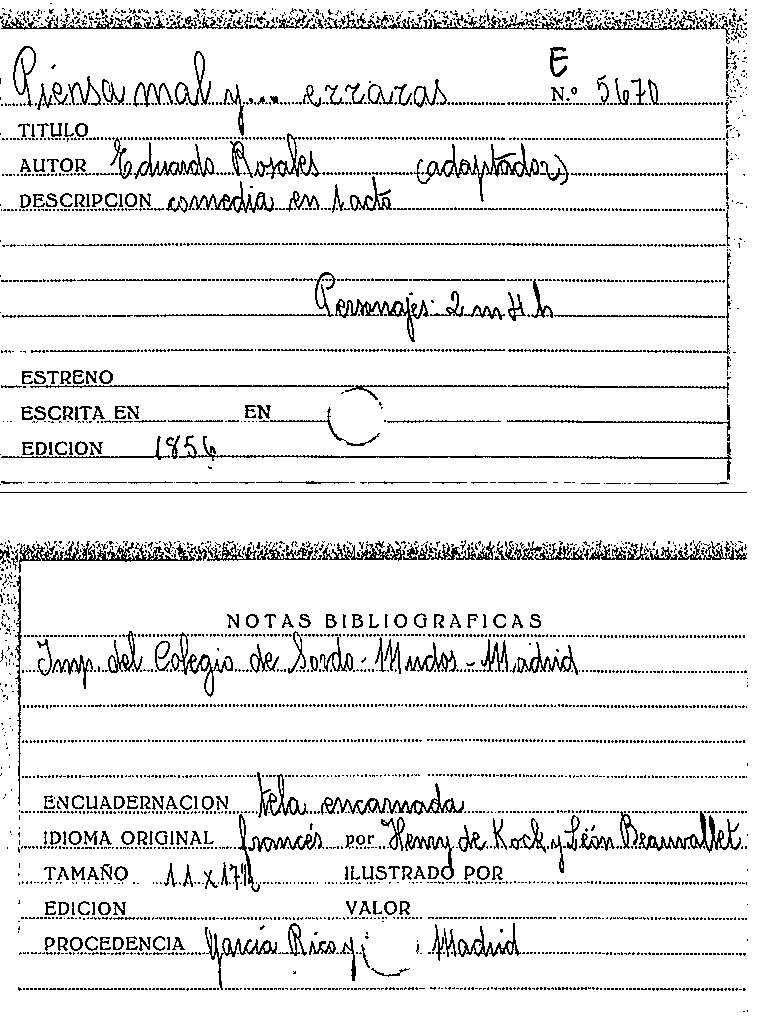 E
Piensa mal y... erraras N.º 5670
TITULO
AUTOR Eduardo Rosales (adaptador)
DESCRIPCION comedia en 1 acto
Personajes: 2 m 4 h
ESTRENO
ESCRITA EN EN
EDICION 1856
NOTAS BIBLIOGRAFICAS
Imp. del Colegio de Sordo-Mudos - Madrid
ENCUADERNACION tela encarnada
IDIOMA ORIGINAL francés por Henry de Kock y Léon Beauvallet
TAMAÑO 11 x 17½
ILUSTRADO POR
EDICION VALOR
PROCEDENCIA García Rico y Madrid